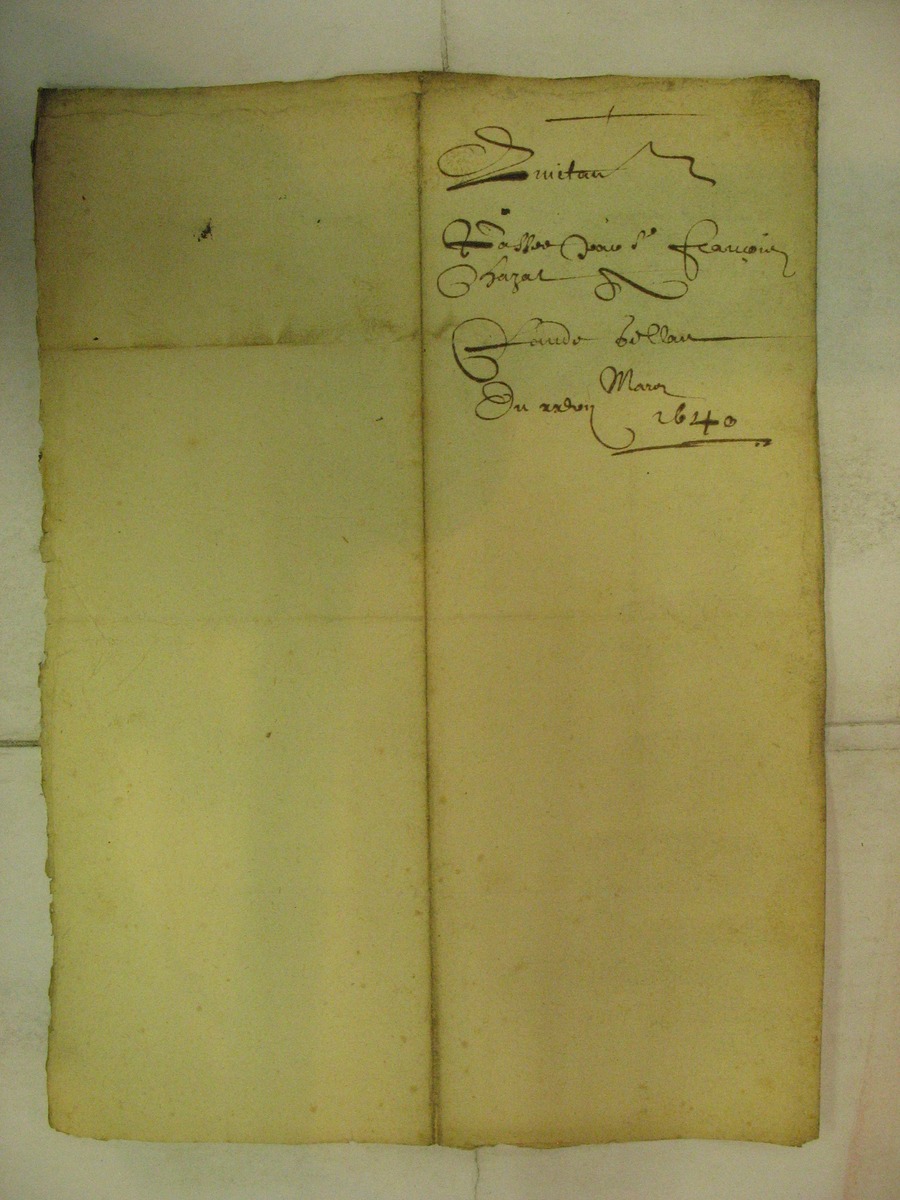 Quitan
Passee pour sr françois
Chazal &
Claude bellan
Du xxvij Mars
1640